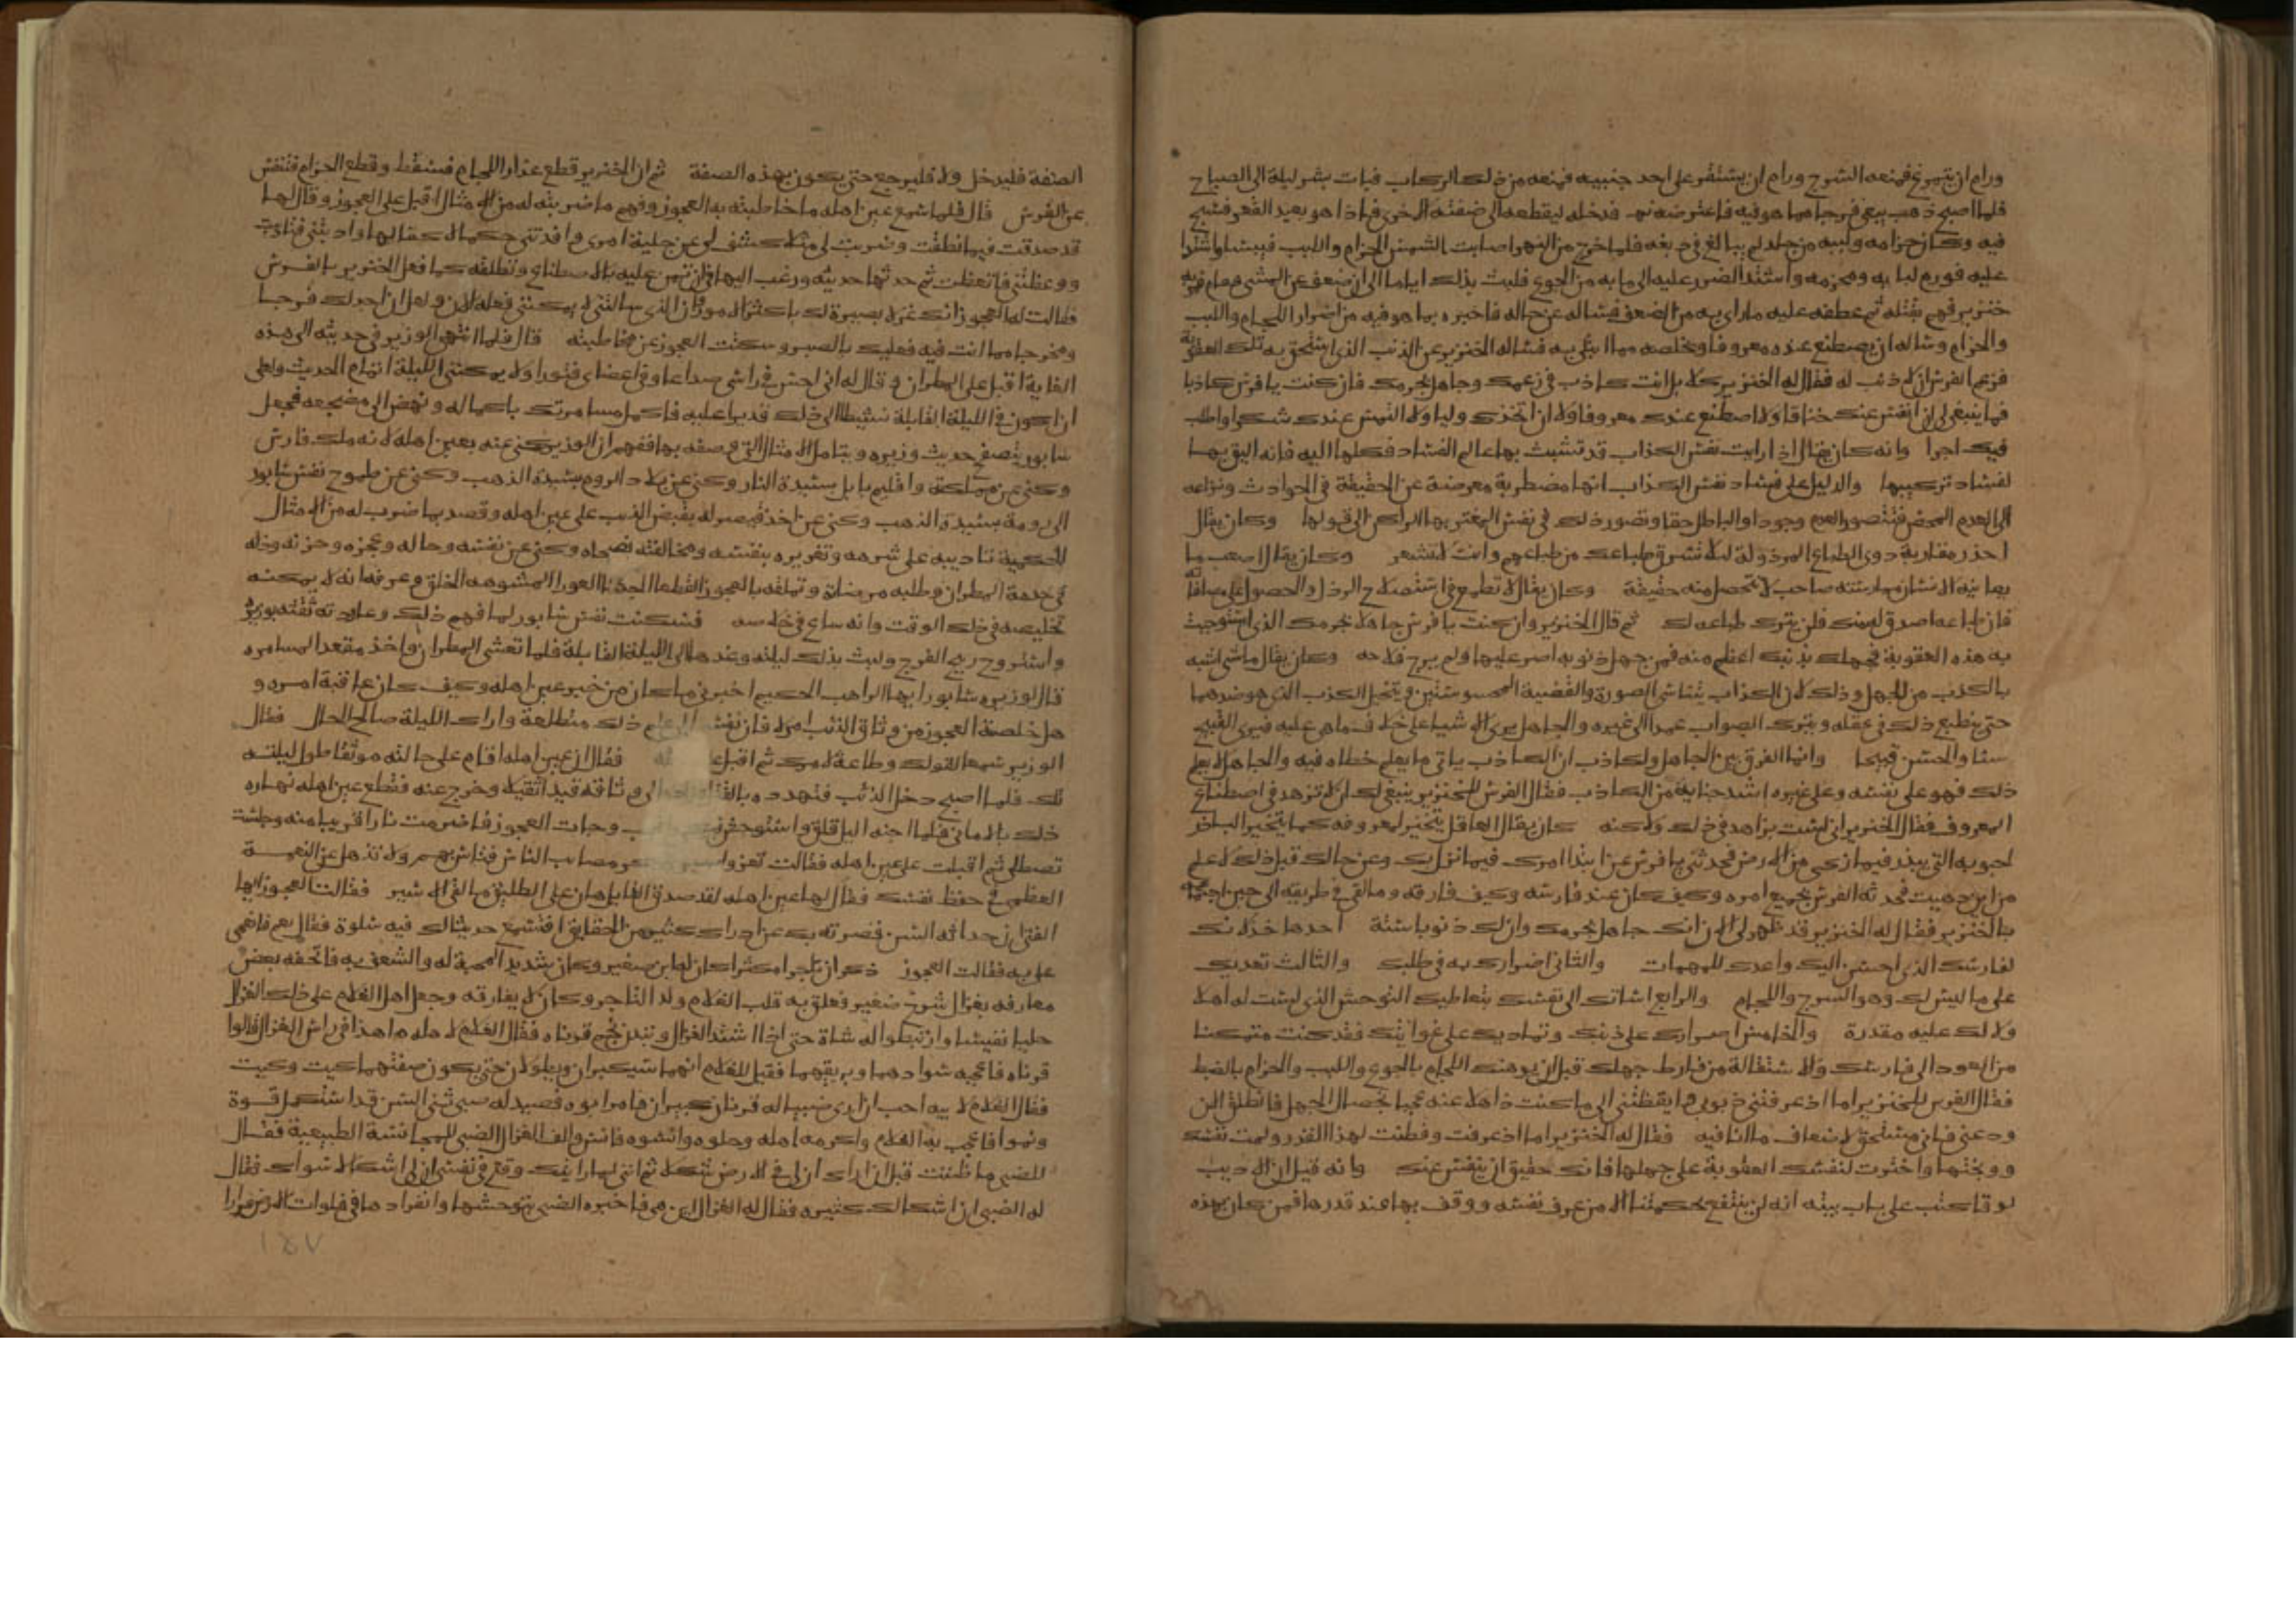 ورام ان يتمرغ فمنعه السرج ورام ان يستقر على احد جنبيه فمنعه من ذلك الركاب فبات بشر ليلة الى الصباح
فلما اصبح ذهب يبغي فرجا مما هو فيه فاعترضه نهر فدخله ليقطعه الى ضفته الاخرى فاذا هو بعيد القعر فسبح
فيه وكان حزامه ولببه من جلد لم يبالغ في دبغه فلما خرج من النهر اصابت الشمس الحزام واللبب فيبسا واشتدا
عليه فورم لبابه ومحزمه واشتد الضرر عليه الى ما به من الجوع فلبث بذلك اياما الى ان ضعف عن المشي فمر به
خنزير فهم بقتله ثم عطفه عليه ما راى به من الضعف فساله عن حاله فاخبره بما هو فيه من اضرار اللجام واللبب
والحزام وساله ان يصطنع عنده معروفا ويخلصه مما ابتلي به فساله الخنزير عن الذنب الذي استحق به تلك العقوبة
فزعم الفرس ان لا ذنب له فقال له الخنزير كلا بل انت كاذب في زعمك وجاهل بجرمك فان كنت يا فرس كاذبا
فما ينبغي لي ان انفس عنك خناقا ولا اصطنع عندك معروفا ولا ان اتخذك وليا ولا التمس عندك شكرا واطلب
فيك اجرا وانه كان يقال اذا رايت نفس الكذاب قد تشبث بها عالم الفساد فكلها اليه فانه اليق بها
لفساد تركيبها والدليل على فساد نفس الكذاب انها مضطربة معرضة عن الحقيقة في الحوادث ونزاعه
الى العدم المحض فتتصور العدم وجودا والباطل حقا وتصور ذلك في نفس المغتر بها الراكن الى قبولها وكان يقال
احذر مقاربة ذوي الطباع المرذولة ليلا تسرق طباعك من طباعهم وانت لا تشعر وكان يقال اصعب ما
يعانيه الانسان ممارسته صاحب لا تحصل منه حقيقة وكان يقال لا تطمع في استصلاح الرذل والحصول على مصافاته
فان طباعه اصدق له منك فلن يترك طباعه لك ثم قال الخنزير وان كنت يا فرس جاهلا بجرمك الذي استوجبت
به هذه العقوبة فجهلك بذنبك اعظم منه فمن جهل ذنوبه اصر عليها ولم يرج فلاحه وكان يقال ما شي اشبه
بالكذب من الجهل وذلك لان الكذاب يتناسى الصورة والقضية المحسوستين ويتخيل الكذب الذي هو ضدهما
حتى ينطبع ذلك في عقله ويترك الصواب عمدا الى غيره والجاهل يرى الاشيا على خلاف ما هي عليه فيرى القبيح
حسنا والحسن قبيحا وانما الفرق بين الجاهل والكاذب ان الكاذب ياتي ما يعلم خطاه فيه والجاهل لا يعلم
ذلك فهو على نفسه وعلى غيره اشد جناية من الكاذب فقال الفرس للخنزير ينبغي لك ان لا تزهد في اصطناع
المعروف فقال الخنزير اني لست بزاهد في ذلك ولكنه كان يقال العاقل يتخير لمعروفه كما يتخير الباذر
لحبوبه التي يبذر فيها ما زكى من الارض فحدثني يا فرس عن ابتدا امرك فيما نزل بك وعن حالك قبل ذلك لاعلم
من اين دهيت فحدثه الفرس بجميع امره وكيف كان عند فارسه وكيف فارقه وما لقي في طريقه الى حين اجتماعه
بالخنزير فقال له الخنزير قد ظهر لي الان انك جاهل بجرمك وان لك ذنوبا ستة احدها خذلانك
لفارسك الذي احسن اليك واعدك للمهمات والثاني اضرارك به في طلبك والثالث تعديك
على ما ليس لك وهو السرج واللجام والرابع اساتك الى نفسك بتعاطيك التوحش الذي لست له اهلا
ولا لك عليه مقدرة والخامس اصرارك على ذنبك وتماديك على غوايتك فقد كنت متمكنا
من العود الى فارسك والاستقالة من فارط جهلك قبل ان يوهنك اللجام بالجوع واللبب والحزام بالضبط
فقال الفرس للخنزير اما اذ عرفتني ذنوبي وايقظتني الى ما كنت ذاهلا عنه محجبا بحجاب الجهل فانطلق الان
ودعني فاني مستحق لاضعاف ما انا فيه فقال له الخنزير اما اذ عرفت وفطنت لهذا القدر ولمت نفسك
ووبختها واخترت لنفسك العقوبة على جهلها فانك حقيق ان ينفس عنك وانه قيل ان الاديب
لوقا كتب على باب بيته انه لن ينتفع بحكمتنا الا من عرف نفسه ووقف بها عند قدرها فمن كان بهذه
الصفة فليدخل والا فليرجع حتى يكون بهذه الصفة ثم ان الخنزير قطع عذار اللجام فسقط وقطع الحزام فنفس
عن الفرس قال فلما سمع عين اهله ما خاطبته به العجوز وفهم ما ضربته له من الامثال اقبل على العجوز وقال لها
قد صدقت فيما نطقت وضربت لي مثلا كشف لي عن جلية امري وافدتني حكما لا كفا لها وادبتني فتادبت
ووعظتني فاتعظت ثم حدثها حديثه ورغب اليها في ان تمن عليه بالاصطناع وتطلقه كما فعل الخنزير بالفرس
فقالت له العجوز انك غر لا بصيرة لك باكثر الامور فان الذي سالتني لا يمكنني فعله الان ولعل ان اجد لك فرجا
ومخرجا مما انت فيه فعليك بالصبر وسكتت العجوز عن مخاطبته قال فلما انتهى الوزير في حديثه الى هذه
الغاية اقبل على المطران وقال له اني احس في راسي صداعا وفي اعضاي فتورا ولا يمكنني الليلة اتمام الحديث ولعلي
ان اكون في الليلة القابلة نشيطا الى ذلك قديرا عليه فاكمل مسامرتك باكماله ونهض الى مضجعه فجعل
سابور يتصفح حديث وزيره ويتامل الامثال التي وصفه بها ففهم ان الوزير كنى عنه بعين اهله لانه ملك فارس
وكنى عن مملكته واقليم بابل بسيدة النار وكنى عن بلاد الروم بسيدة الذهب وكنى عن طموح نفس سابور
الى رومة بسيدة الذهب وكنى عن اخذ قيصر له بقبض الذيب على عين اهله وقصد بما ضرب له من الامثال
الحكمية تاديبه على شرهه وتغريره بنفسه ومخالفته نصحاه وكنى عن نفسه وحاله وعجزه وحزنه وذله
في خدمة المطران وطلبه مرضاته وتملقه بالعجوز القطعا الجدعا العورا المشوهه الخلق وعرفه انه لا يمكنه
تخليصه في ذلك الوقت وانه ساع في خلاصه فسكنت نفس سابور لما فهم ذلك وعاودته ثقته بوزيره
واستروح ريح الفرج ولبث بذلك ليلته وغدها الى الليلة القابلة فلما تعشى المطران واخذ مقعد المسامره
قال لوزيره سابور ايها الراهب الحكيم اخبرني ما كان من خبر عين اهله وكيف كان عاقبة امره و
هل خلصته العجوز من وثاق الذئب ام لا فان نفسي ذلك متطلعة واراك الليلة صالح الحال فقال
الوزير سمعا لقولك وطاعة لامرك ثم اقبل فقال ان عين اهله اقام على حالته موثقا طول ليلته
تلك فلما اصبح دخل الذئب فتهدده بالقتل وثاقه قيدا ثقيلا وخرج عنه فقطع عين اهله نهاره
ذلك بالاماني فلما اجنه الليل قلق واستوحش وجات العجوز فاضرمت نارا قريبا منه وجلست
تصطلي ثم اقبلت على عين اهله فقالت تعز مصايب الناس فتاس بهم ولا تذهل عن النعمة
العظمى في حفظ نفسك فقال لها عين اهله لقد صدق القايل هان على الطليق ما لقي الاسير فقالت العجوز ايها
الفتى ان حداثة السن قصرت بك عن ادراك كثير من الحقايق افتسمع حديثا لك فيه سلوة فقال نعم فانعمي
علي به فقالت العجوز ذكر ان تاجرا مكثرا كان له ابن صغير وكان شديد المحبة له والشغف به فاتحفه بعض
معارفه بغزال شوخ صغير فعلق به قلب الغلام ولد التاجر وكان لا يفارقه وجعل اهل الغلام على ذلك الغزال
حليا نفيسا وارتبطوا له شاة حتى اذا اشتد الغزال وبدر نجم قرناه فقال الغلام لاهله ما هذا في راس الغزال قالوا
قرناه فاعجبه سوادهما وبريقهما فقيل للغلام انهما سيكبران ويطولان حتى يكون صفتهما كيت وكيت
فقال الغلام لابيه احب ان ارى ضبيا له قرنان كبيران فامر ابوه فصيد له ضبي ثني السن قد استكمل قوة
ونموا فاعجب به الغلام واكرمه اهله وحلوه وانسوه فانس والف الغزال الضبي للمجانسة الطبيعية فقال
للضبي ما ظننت قبل ان اراك ان لي في الارض شكلا ثم انني لما رايتك وقع في نفسي ان لي اشكالا سواك فقال
له الضبي ان اشكالك كثيره فقال له الغزال اين هي فاخبره الضبي بتوحشها وانفرادها في فلوات الارض فرارا
١٤٧